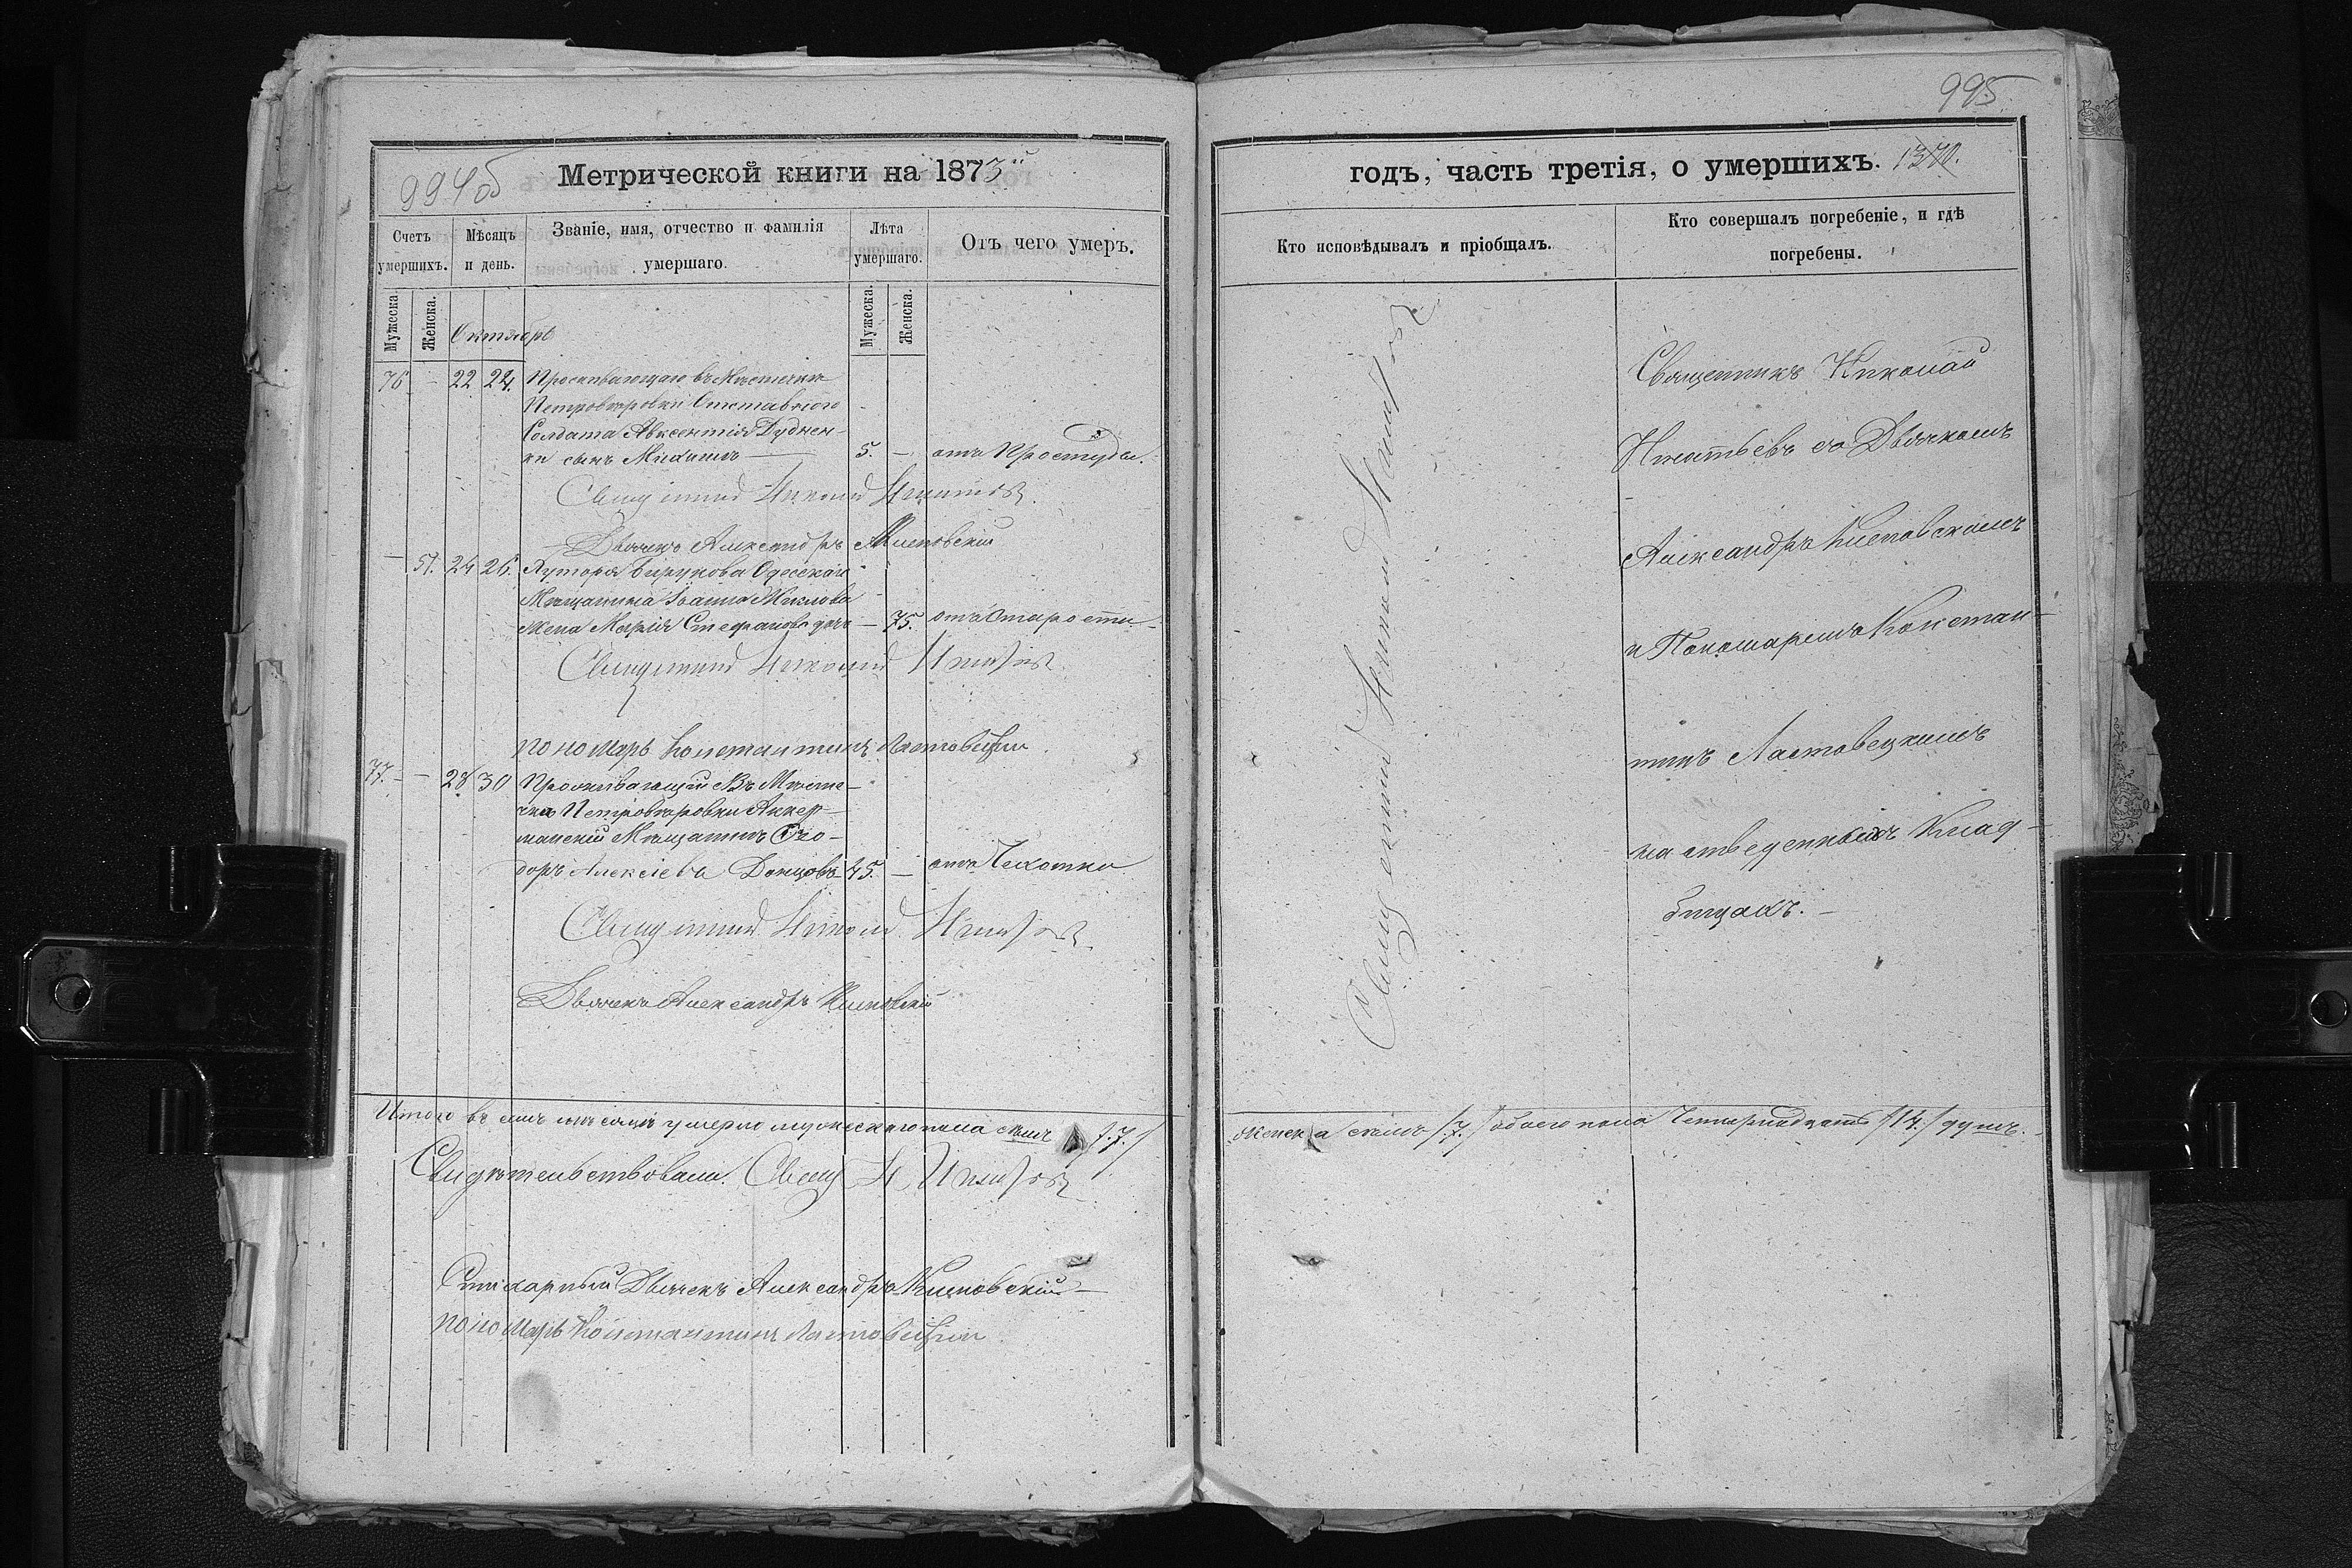 994об
Метрической книги на 1873й
Счетъ умершихъ.
Мѣсяцъ и день.
Званіе, имя, отчество и фамилія умершаго.
Лѣта умершаго.
Отъ чего умеръ.
Мужеска.
Женска.
Мужеска.
Женска.
Октябрь
76 - 22 24. Проживающаго въ Мѣстечкѣ
Петровѣровки Отставного
Солдата Авксентія Дуднен-
ки сынъ Михаилъ — 5. — отъ Простуды.
Священникъ Николай Игнатьевъ.
Дьячекъ Александръ
— 51. 24 26. Хутора Бирукова Одесскаго
Мѣщанина Іоанна
жена Марія Стефанова дочь — 75. отъ Старости
Священникъ Николай Игнатьевъ
пономарь Константинъ Ластовецкій
77. — 28 30 Проживающій Въ Мѣсте-
чкѣ Петровѣровки Аккер-
манскій Мѣщанинъ Ѳео-
доръ Алексіевъ Донцовъ 45. — отъ Чехотки
Священникъ Николай Игнатьевъ
Дьячекъ Александръ
Итого въ семъ мѣсяцѣ умерло мужескаго пола семь /7./
Свидѣтельствовали: Свящ Н Игнатьевъ
Стихарный Дьячекъ Александръ
пономарь Константинъ Ластовецкій
995
годъ, часть третія, о умершихъ. 1370.
Кто исповѣдывалъ и пріобщалъ.
Кто совершалъ погребеніе, и гдѣ погребены.
Священникъ Николай Игнатьевъ
Священникъ Николай
Игнатьевъ со Дьячкомъ
Александромъ
и Пономаремъ Констан-
тинъ Ластовецкимъ
на отведенныхъ Клад-
бищахъ. —
женска семь /7./ обоего пола Четырнадцать /14./ душъ.